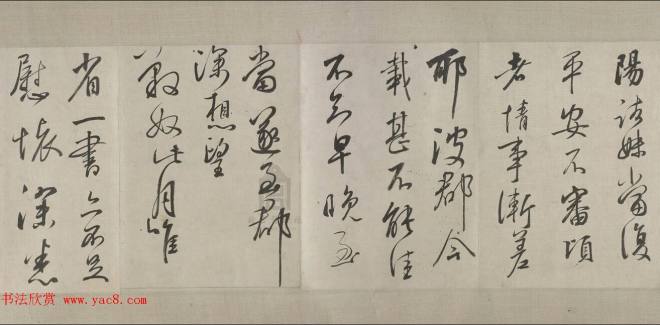 陽諸妹當復
平安不審頃
者情事漸差
耶彼郡今
載甚不能佳
不知早晚至
當遂至郡
深想望
藪奴此月唯
省一書亦不足
慰懷深
书法欣赏 www.yac8.com